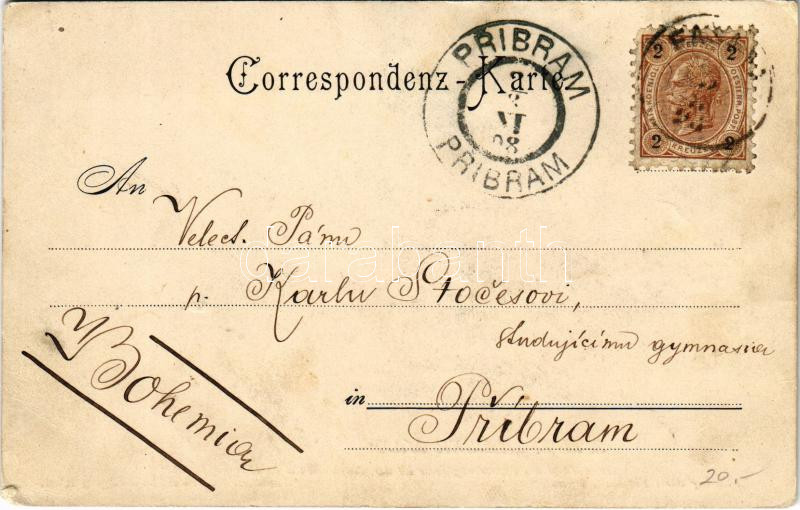 Correspondenz-Karte
PRIBRAM
VI
98
PRIBRAM
2 2
2 KREUZER 2
An
Velect. Pánu
p. Karlu Stočesovi,
studujícímu gymnasia
in Příbram
Bohemia
20.-
darabanth